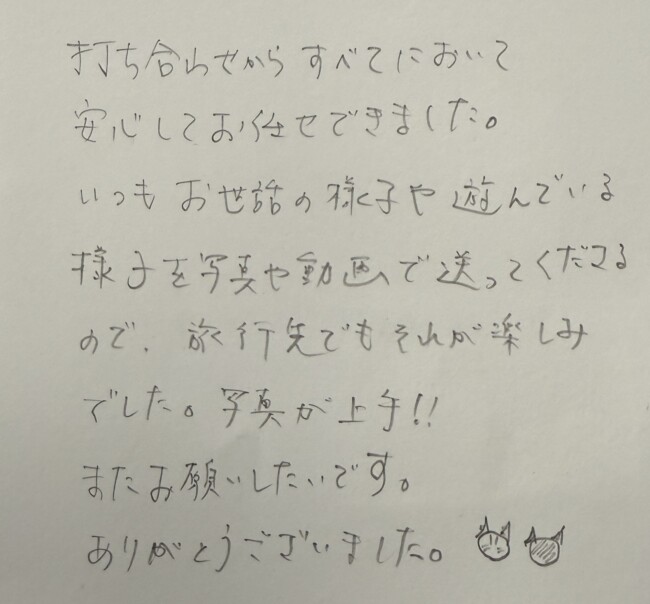 打ち合わせから すべてにおいて
安心してお任せできました。
いつも お世話の様子や 遊んでいる
様子を写真や動画で送ってくださる
ので、旅行先でもそれが楽しみ
でした。写真が上手!!
またお願いしたいです。
ありがとうございました。